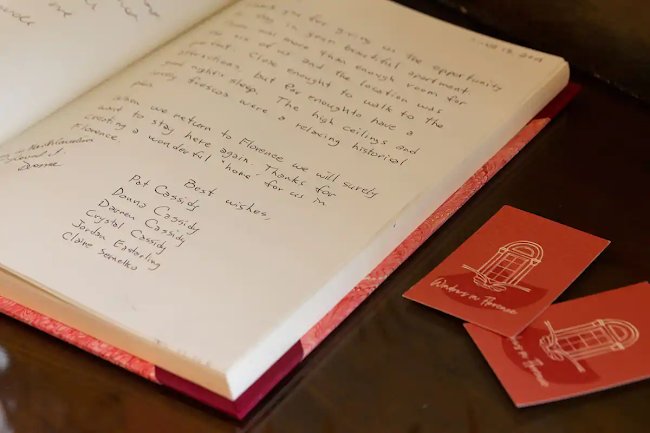 you for giving us the opportunity
to stay in your beautiful apartment.
was more than enough room for
six of us and the location was
perfect. Close enought to walk to the
attractions, but far enoughto have a
good night's sleep. The high ceilings and
lovely frescos were a relaxing historial
When we return to Florence we will surely
want to stay here again. Thanks for
creating a wonderful 'home' for us in
Florence
Best wishes,
Pat Cassidy
Donna Cassidy
Darren Cassidy
Crystal Cassidy
Jordan Easterling
Claire
Windows on Florence
on Florence